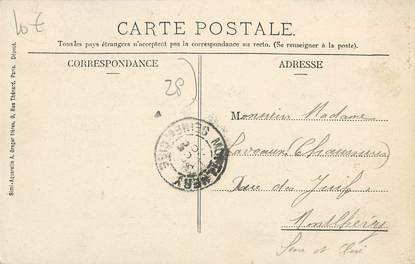 10 €
CARTE POSTALE.
Tous les pays étrangers n'acceptent pas la correspondance au recto. (Se renseigner à la poste).
CORRESPONDANCE
ADRESSE
28
Semi-Aquarelle A. Breger frères, 9, Rue Thénard, Paris. Déposé.
MONTLHÉRY
SEINE-ET-OISE
Monsieur Madame
(Chaussures)
Rue des Juifs
Montlhéry
Seine et Oise